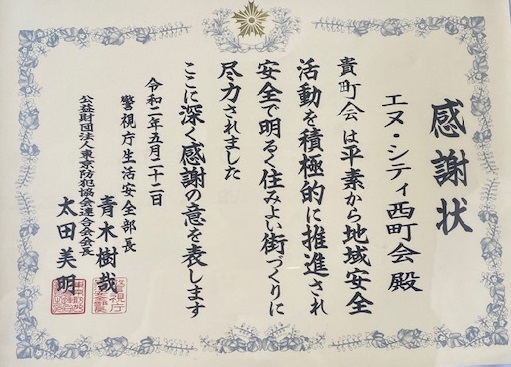 感謝状
エヌ・シティ西町会 殿
貴町会は平素から地域安全
活動を積極的に推進され
安全で明るく住みよい街づくりに
尽力されました
ここに深く感謝の意を表します
令和二年五月二十二日
警視庁生活安全部長
青木樹哉
公益財団法人東京防犯協会連合会会長
太田美明